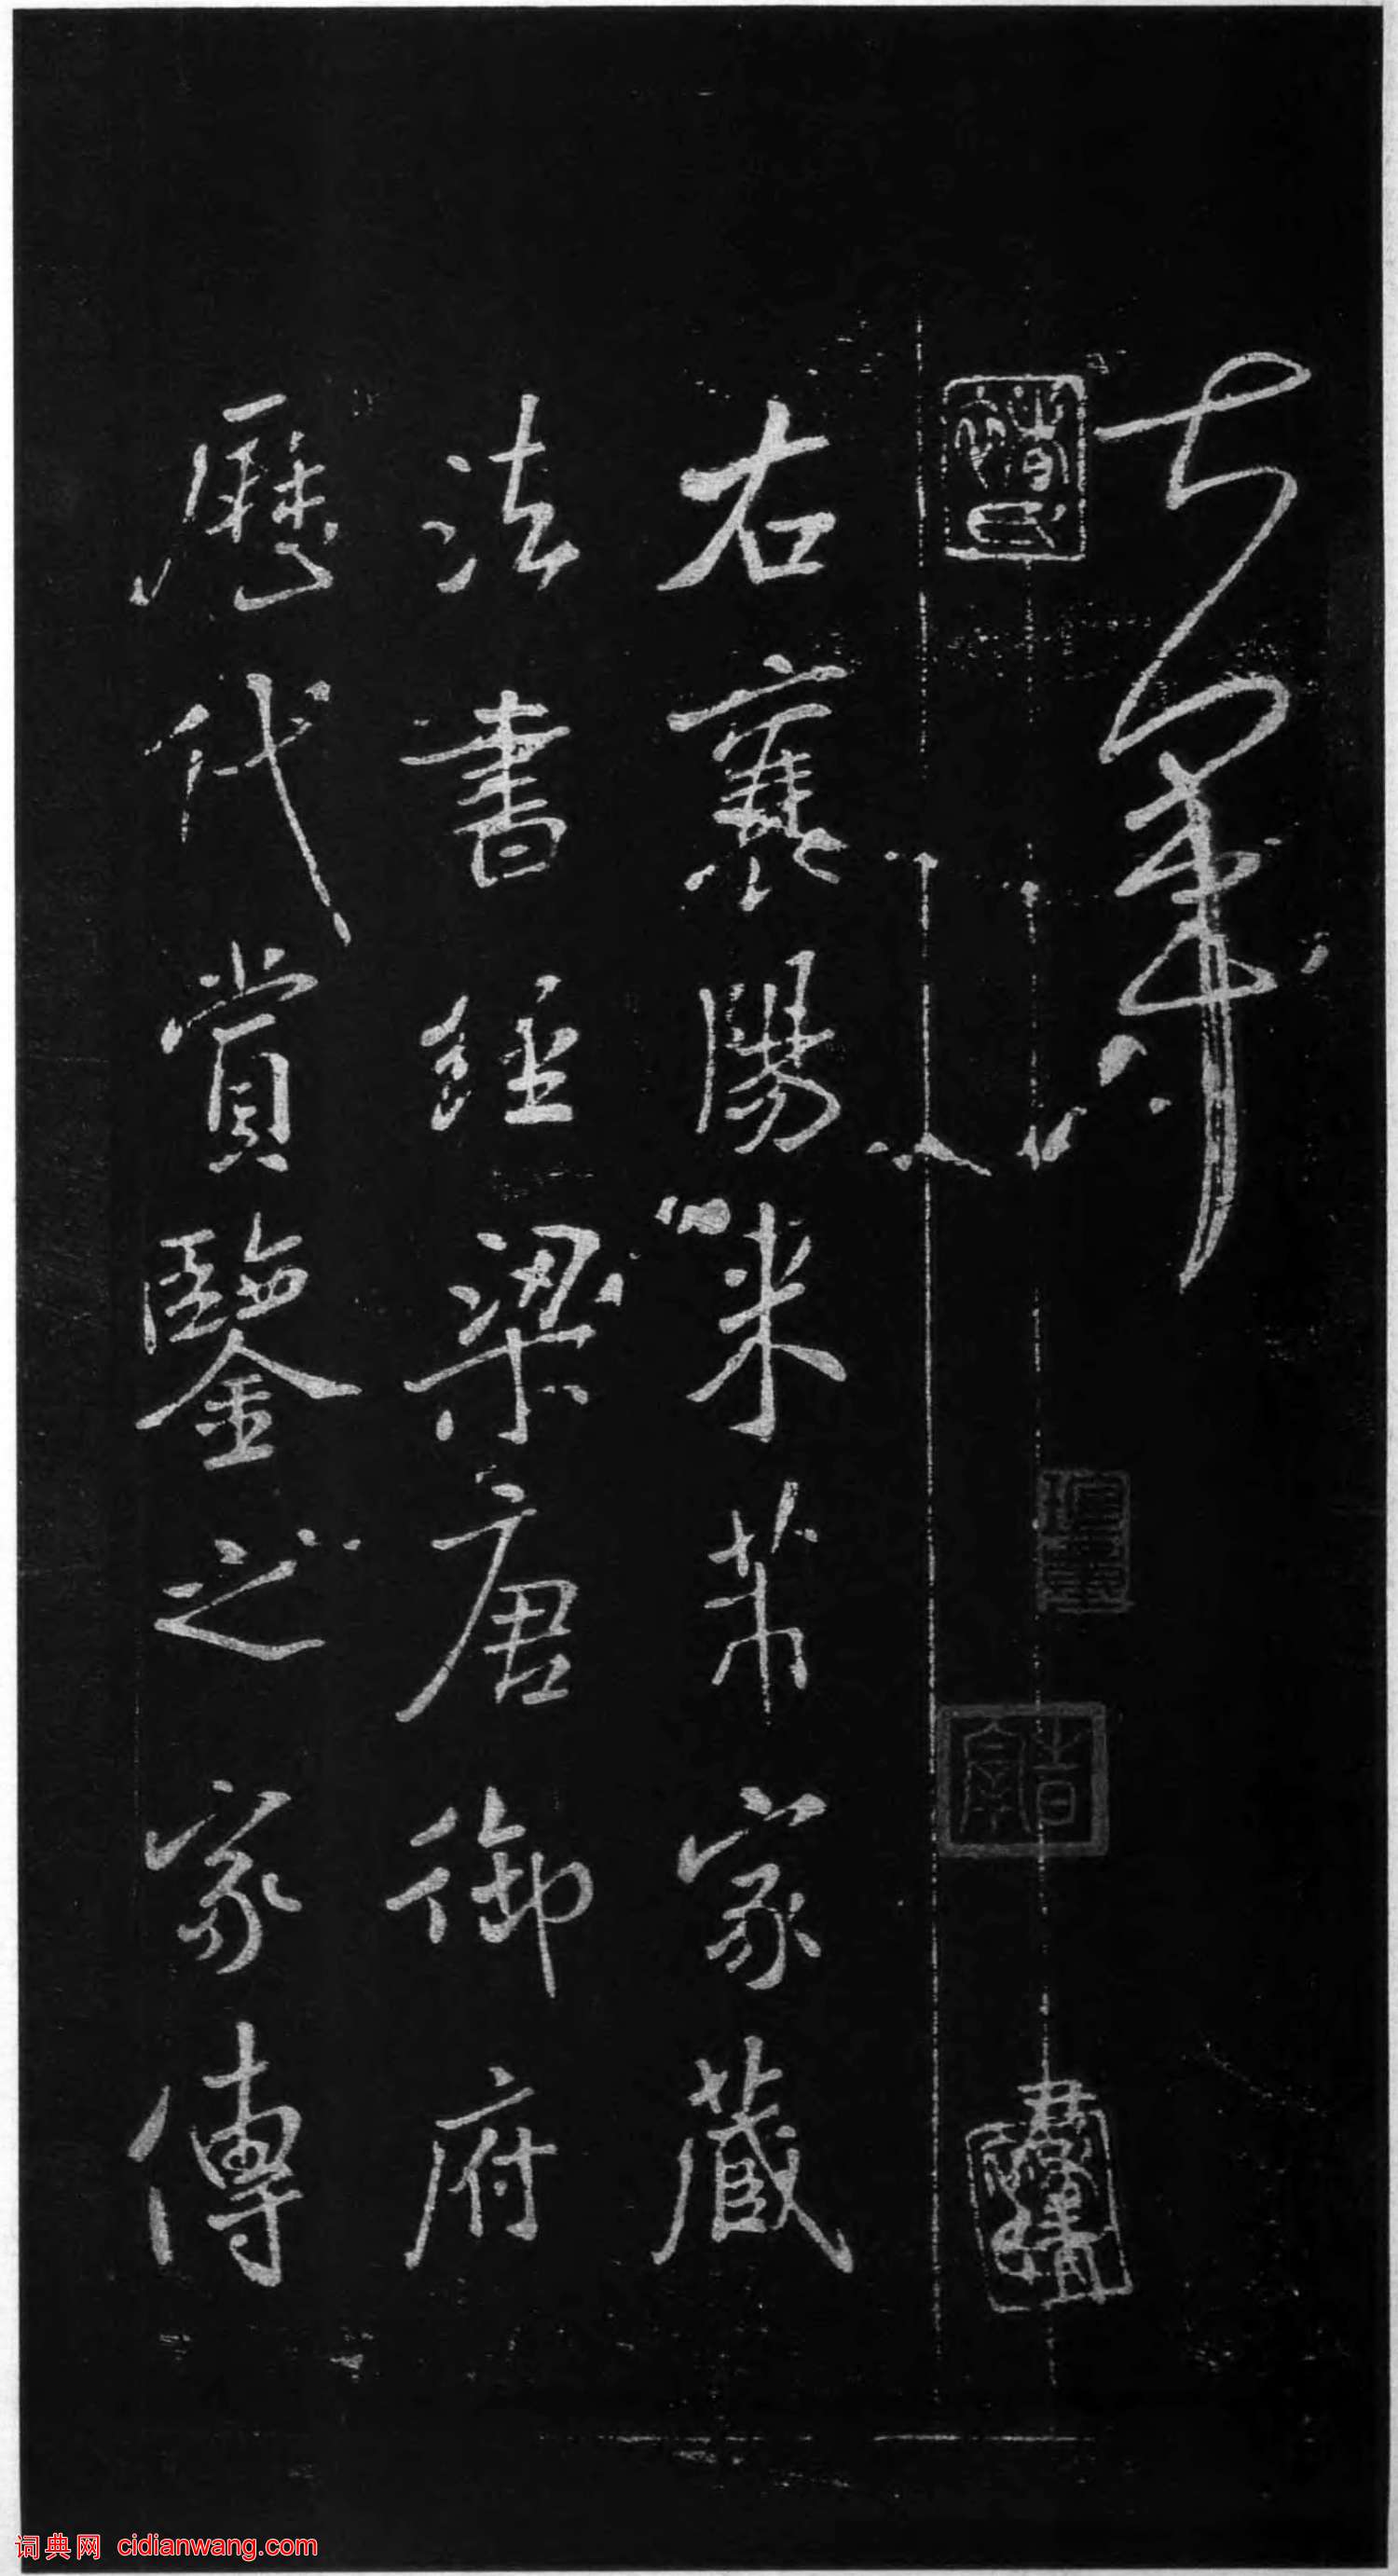 右襄陽米芾家藏
法書經梁唐御府
歷代賞鑒之家傳
词典网 cidianwang.com